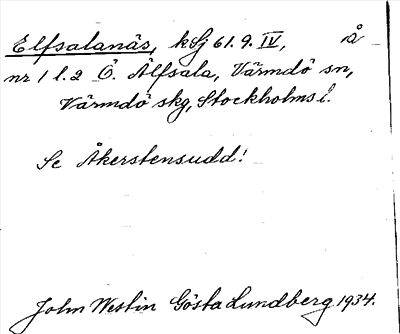 Elfsalanäs, kSj 61.9.IV, Å
nr 1 l.2 Ö. Älfsala, Värmdö sn,
Värmdö skg, Stockholms l.
Se Åkerstensudd!
John Westin Gösta Lundberg 1934.